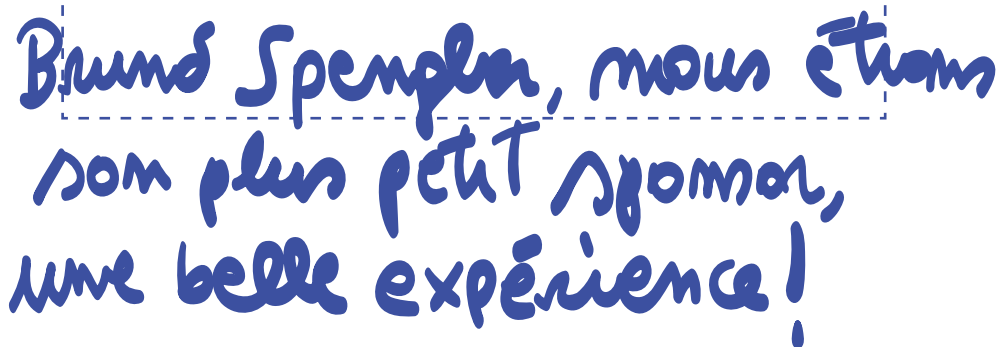 Bruno Spengler, nous étions
son plus petit sponsor,
une belle expérience !